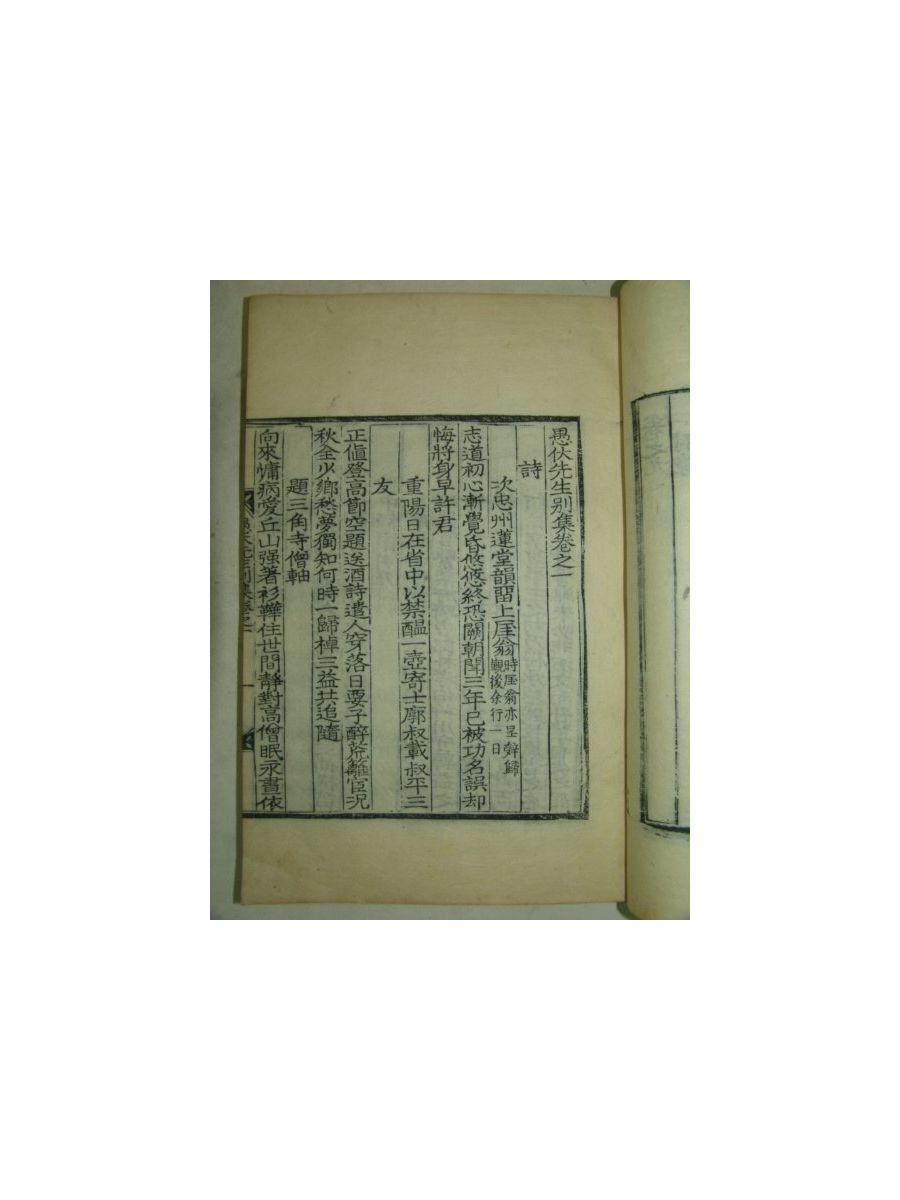 愚伏先生別集卷之一
詩
次忠州蓮堂韻留上厓翁 時厓翁亦呈辭歸
覲後余行一日
志道初心漸覺昏悠悠終恐闕朝聞三年已被功名誤却
悔將身早許君
重陽日在省中以禁醞一壺寄士廓叔載叔平三
友
正値登高節空題送酒詩遣人穿落日要子醉荒籬宦況
秋全少鄕愁夢獨知何時一歸棹三益共追隨
題三角寺僧軸
向來慵病愛丘山强著衫鞾住世間靜對高僧眠永晝依
愚伏先生別集卷之一